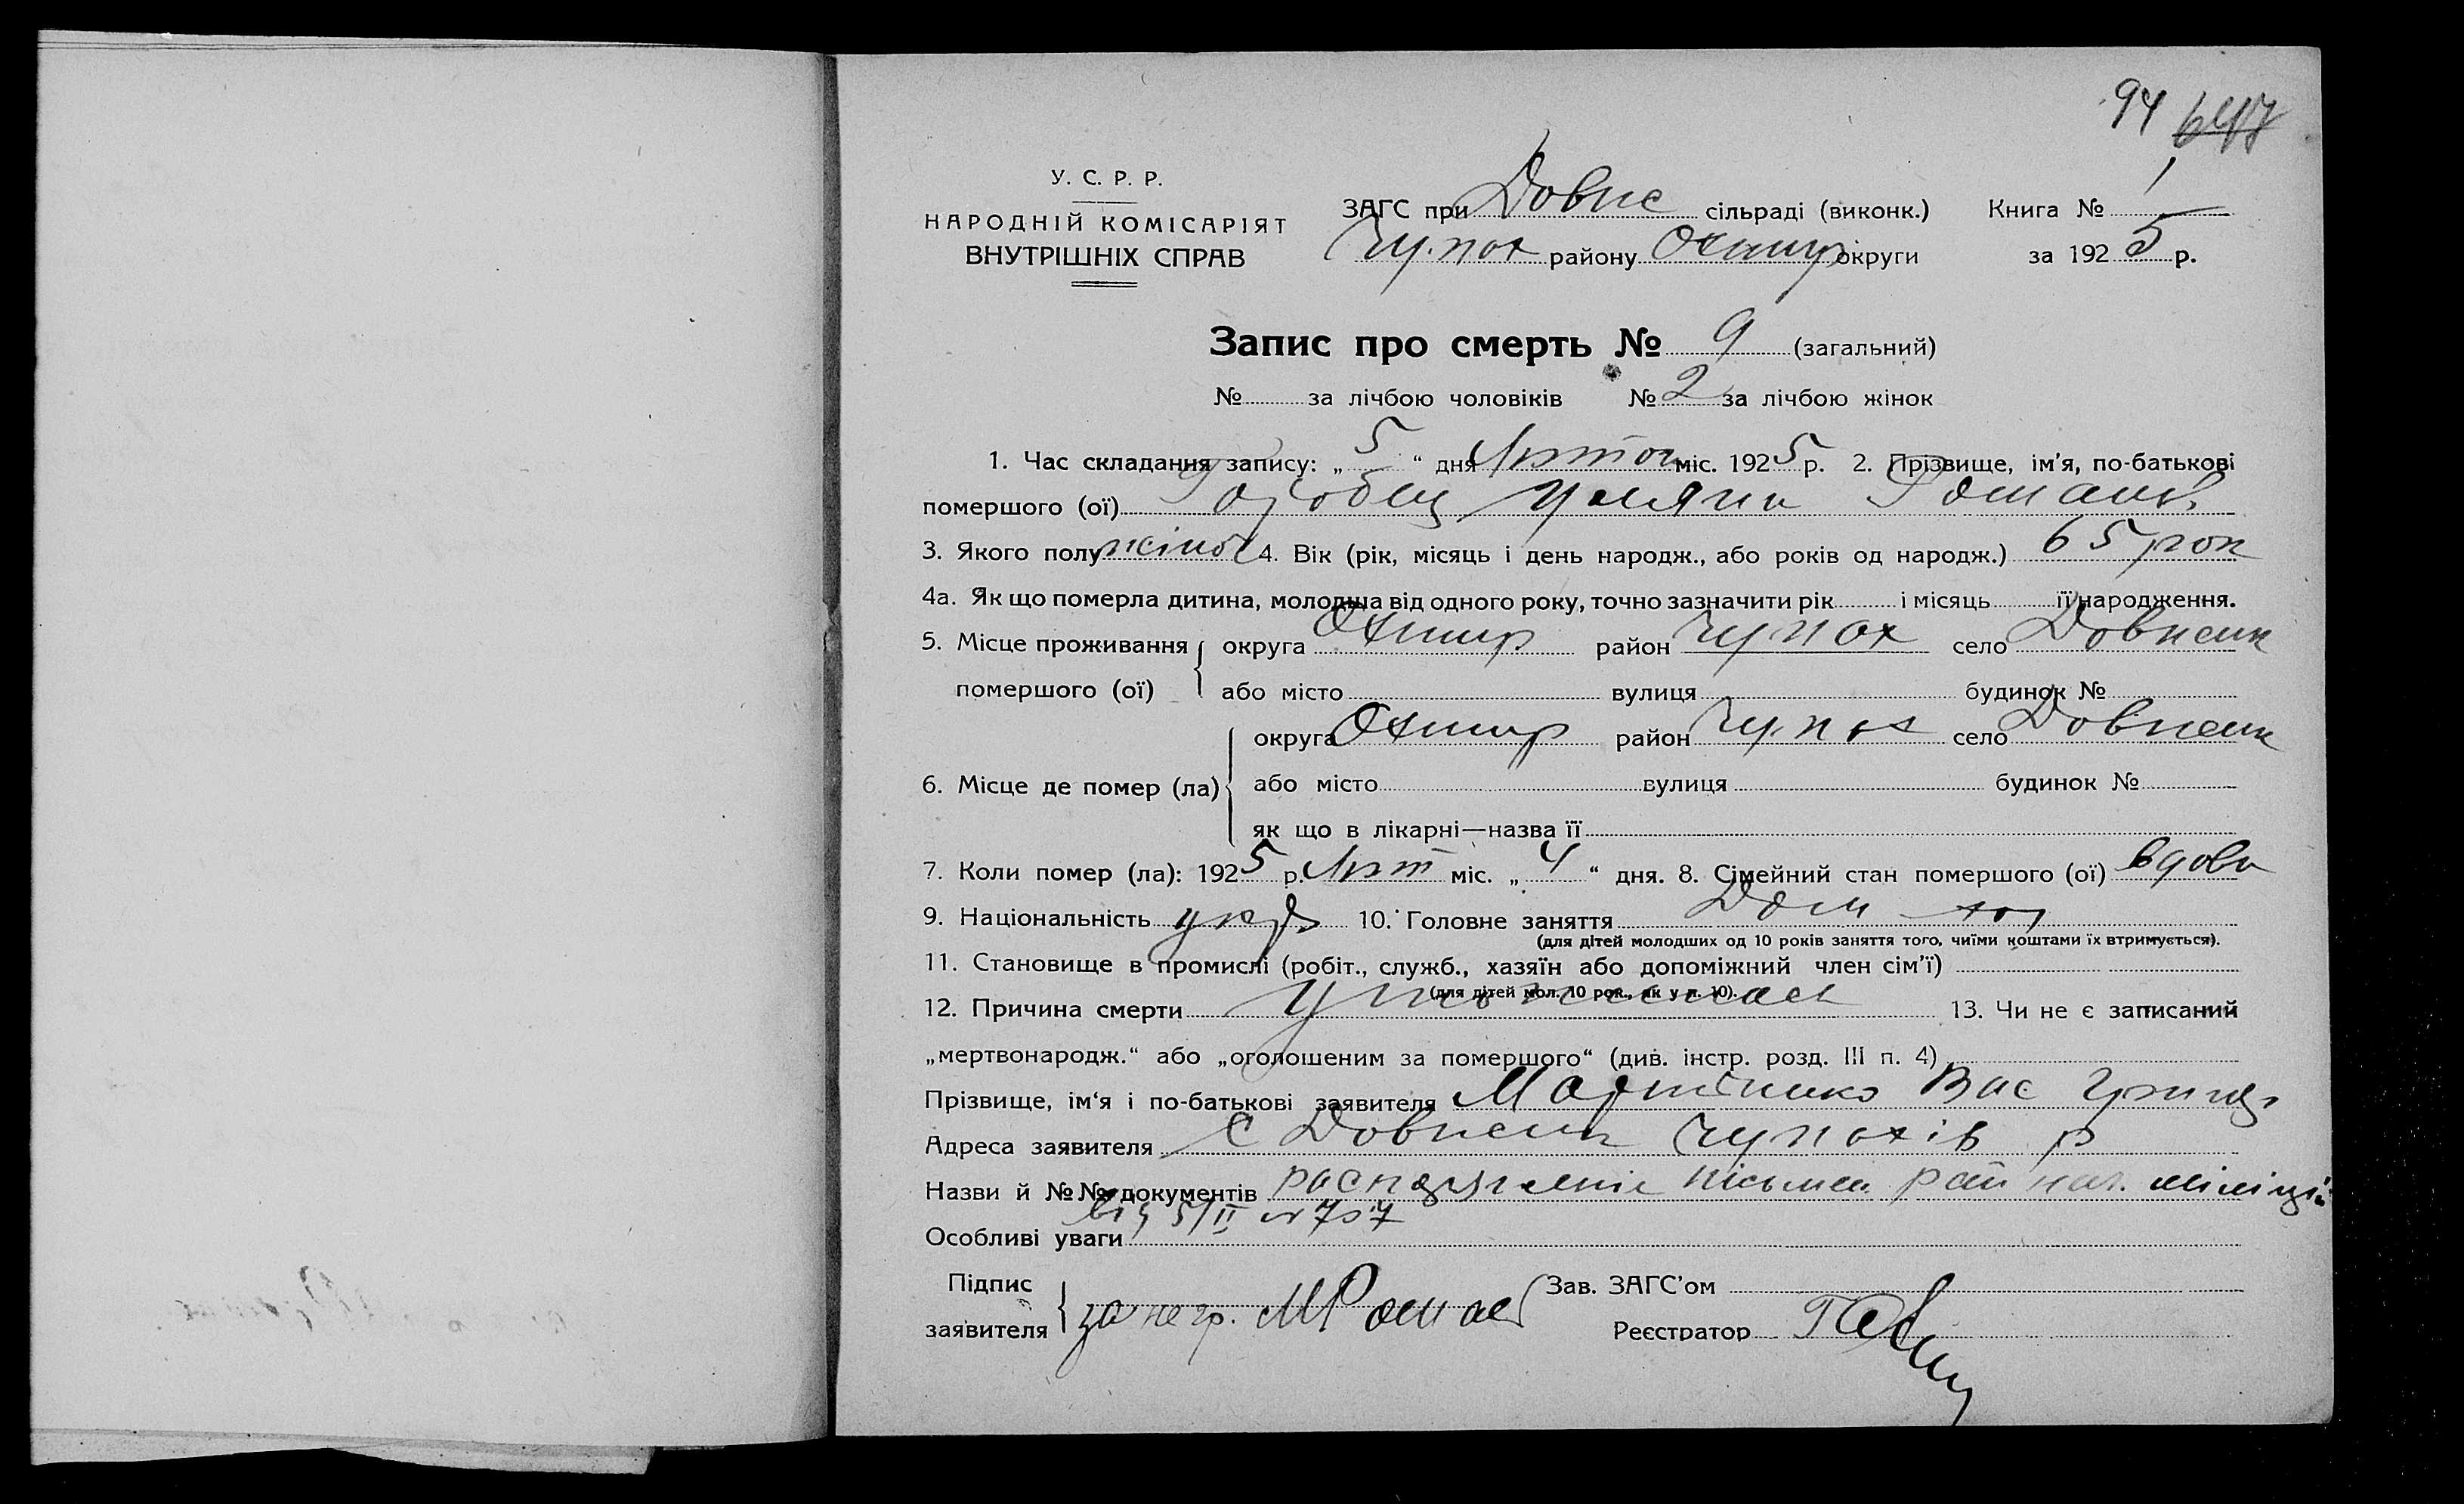 94
У. С. Р. Р.
НАРОДНІЙ КОМІСАРІЯТ
ВНУТРІШНІХ СПРАВ
ЗАГС при Довпс сільраді (виконк.) Книга № 1
Чупах району Охтир округи за 1925 р.
Запис про смерть № 9 (загальний)
№ за лічбою чоловіків № 2 за лічбою жінок
1. Час складання запису: „5“ дня Лютого міс. 1925 р. 2. Прізвище, ім'я, по-батькові
помершого (ої) Горобец Уляна Роман
3. Якого полу жіноч 4. Вік (рік, місяць і день народж., або років од народж.) 65 рок
4а. Як що померла дитина, молодша від одного року, точно зазначити рік і місяць її народження.
5. Місце проживання округа Охтир район Чупах село
помершого (ої) або місто вулиця будинок №
округа Охтир район Чупах село
6. Місце де помер (ла) або місто вулиця будинок №
як що в лікарні—назва її
7. Коли помер (ла): 1925 р. Лют міс. „4“ дня. 8. Сімейний стан помершого (ої) вдова
9. Національність укр 10. Головне заняття Дом хоз
(для дітей молодших од 10 років заняття того, чиїми коштами їх втримується).
11. Становище в промислі (робіт., служб., хазяїн або допоміжний член сім'ї)
(для дітей мол. 10 рок., як у п. 10).
12. Причина смерти 13. Чи не є записаний
„мертвонародж.“ або „оголошеним за помершого“ (див. інстр. розд. III п. 4)
Прізвище, ім'я і по-батькові заявителя Мартиненко Вас Григор
Адреса заявителя С Чупахів р
Назви й №№ документів нач. міліції
від 5/II
Особливі уваги
Підпис
заявителя за негр. МРоман
Зав. ЗАГС'ом
Реєстратор